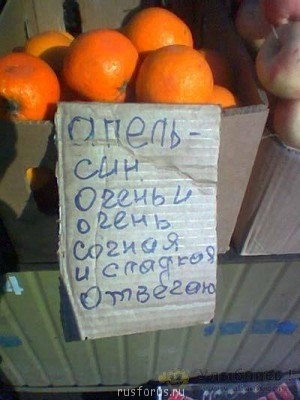 апель-
син
очень и
очень
сочная
и сладкая
отвечаю
rusforus.ru